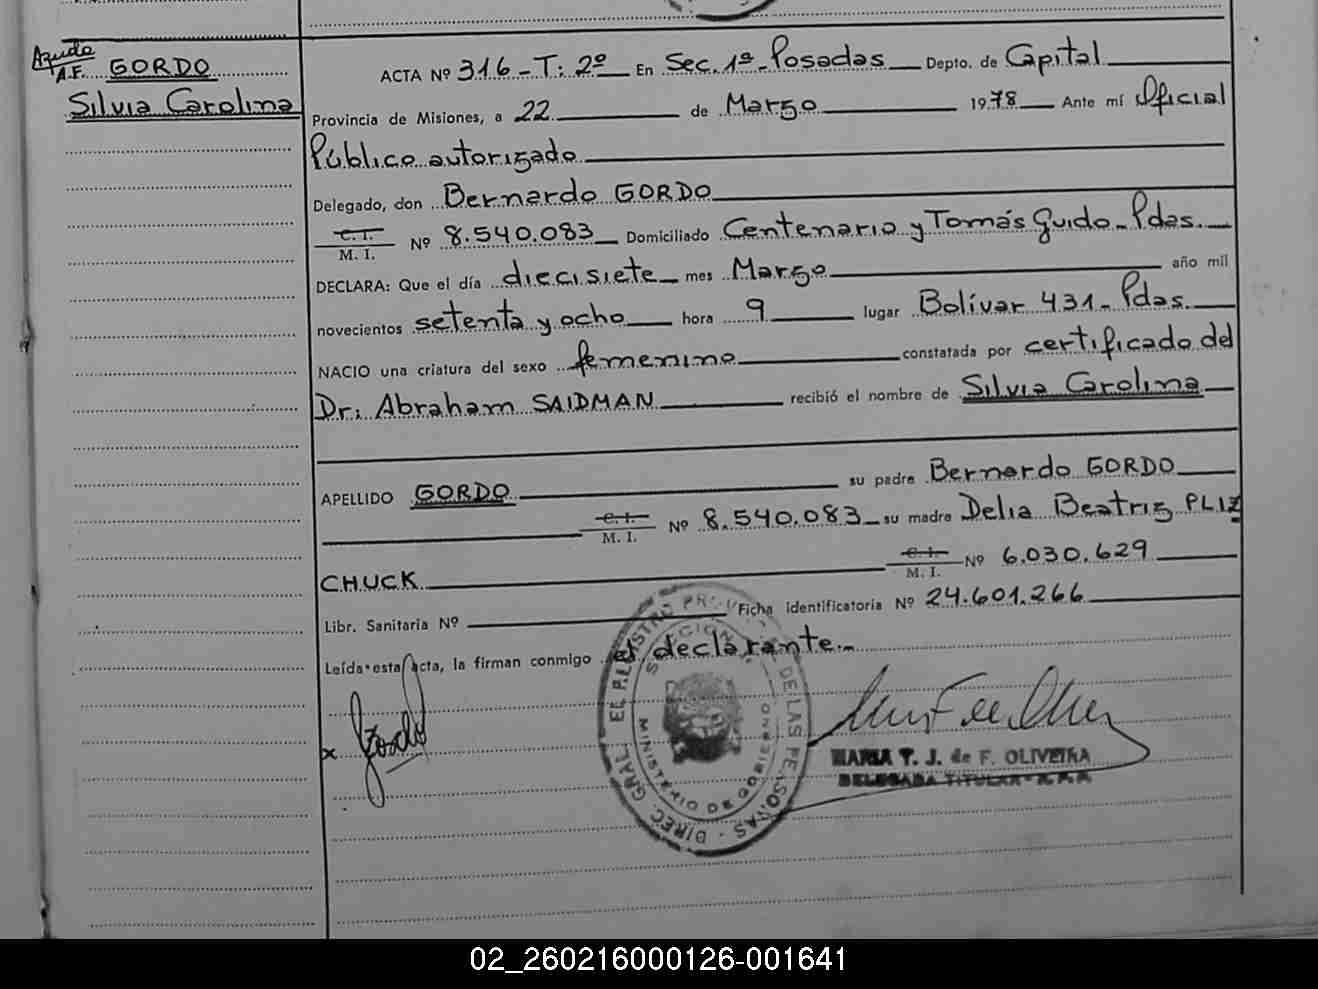 Agudo
A.F. GORDO
Silvia Carolina
ACTA Nº 316-T: 2º En Sec. 1ª-Posadas Depto. de Capital
Provincia de Misiones, a 22 de Marzo 1978 Ante mí Oficial
Público autorizado
Delegado, don Bernardo GORDO
C. I.
M. I. Nº 8.540.083 Domiciliado Centenario y Tomás Guido-Pdas.
DECLARA: Que el día diecisiete mes Marzo año mil
novecientos setenta y ocho hora 9 lugar Bolívar 431-Pdas.
NACIO una criatura del sexo femenino constatada por certificado del
Dr: Abraham SAIDMAN recibió el nombre de Silvia Carolina
APELLIDO GORDO su padre Bernardo GORDO
C. I.
M. I. Nº 8.540.083 su madre Delia Beatriz PLIZ
CHUCK C. I.
M. I. Nº 6.030.629
Libr. Sanitaria Nº Ficha identificatoria Nº 24.601.266
Leída esta acta, la firman conmigo el declarante.-
x Gordo
MARIA T. J. de F. OLIVEIRA
DELEGADA TITULAR
MINISTERIO DE GOBIERNO
02_260216000126-001641